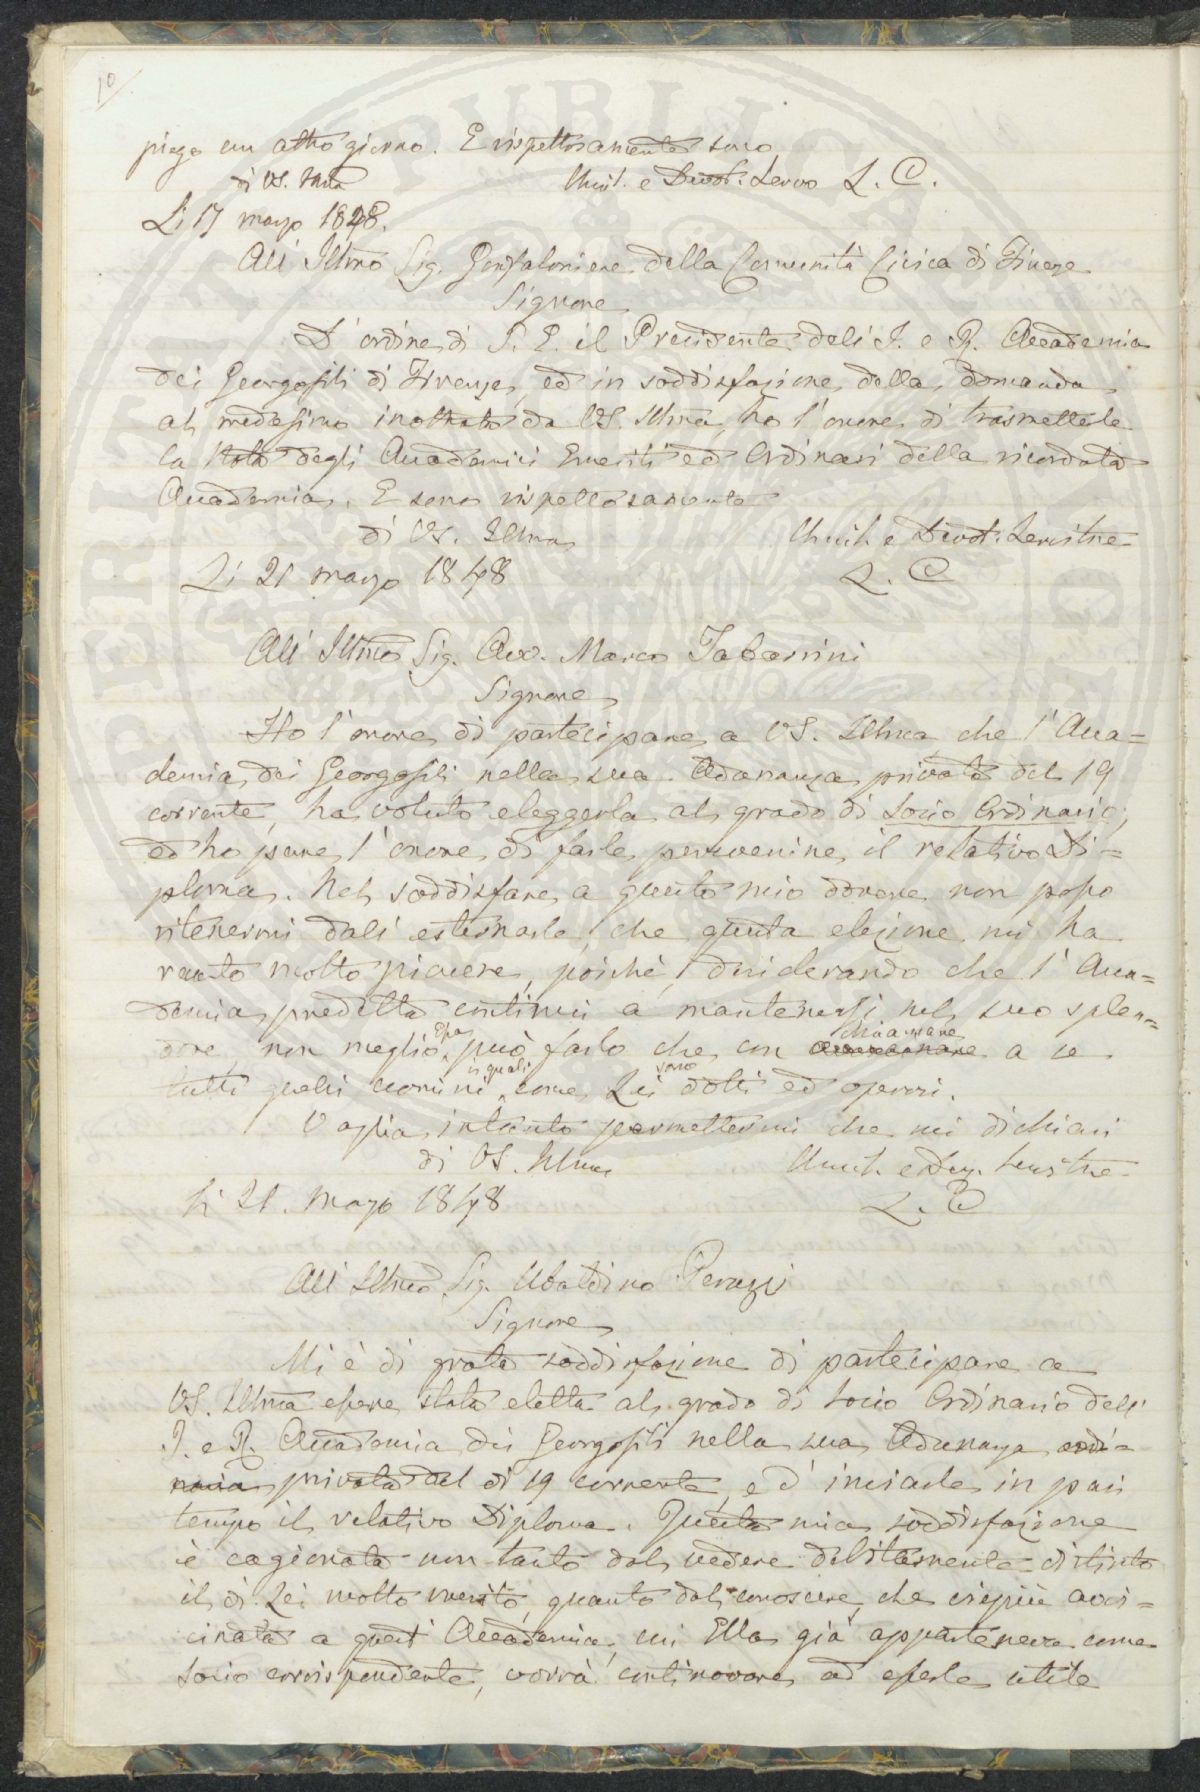 10
piego un altro giorno. E rispettosamente sono
di VS. Illma Umil. e Devot. Servo L. C.
Li 17 marzo 1848.
All' Illmo Sig. Gonfaloniere della Comunità Civica di Firenze
Signore
D'ordine di S. E. il Presidente dell'I. e R. Accademia
dei Georgofili di Firenze, ed in soddisfazione della domanda
al medesimo inoltrata da VS. Illma, ho l'onore di trasmetterle
la Nota degli Accademici Emeriti ed Ordinari della ricordata
Accademia. E sono rispettosamente
di VS. Illma Umil. e Devot. Servitre
Li 21 marzo 1848 L. C
All' Illmo Sig. Avv. Marco Tabarrini
Signore
Ho l'onore di partecipare a VS. Illma che l'Acca=
demia dei Georgofili nella sua Adunanza privata del 19
corrente, ha voluto eleggerla al grado di Socio Ordinario;
ed ho pure l'onore di farle pervenire il relativo Di=
ploma. Nel soddisfare a questo mio dovere non posso
ritenermi dall'esternarle, che questa elezione mi ha
recato molto piacere, poichè, desiderando che l'Acca=
demia predetta continui a mantenersi nel suo splen=
dore non meglio Essa può farlo che con chiamare a se
tutti quelli uomini i quali come Lei sono dotti ed operosi.
Voglia intanto permettermi che mi dichiari
di VS. Illma Umil. e Dev. Servitre
Li 21. Marzo 1848 L. C
All' Illmo Sig. Ubaldino Peruzzi
Signore
Mi è di grata soddisfazione di partecipare a
VS. Illma essere stata eletta al grado di Socio Ordinario dell'
I. e R. Accademia dei Georgofili nella sua Adunanza ordi=
naria privata del di 19 corrente, e d'inviarle in pari
tempo il relativo Diploma. Questa mia soddisfazione
è cagionata non tanto dal vedere debitamente distinto
il di Lei molto merito, quanto dal conoscere, che vie più avvi=
cinata a quest'Accademia, cui Ella già apparteneva come
Socio corrispondente, vorrà continovare ad esserle utile